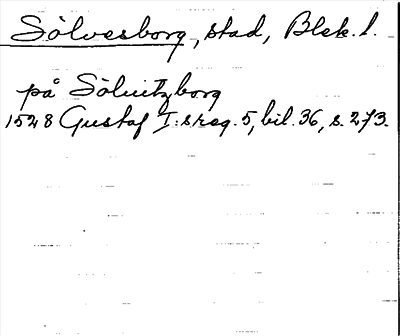 Sölvesborg, stad, Blek. l.
på Söluitzborg
1528 Gustaf I:s reg. 5, bil. 36, s. 273.